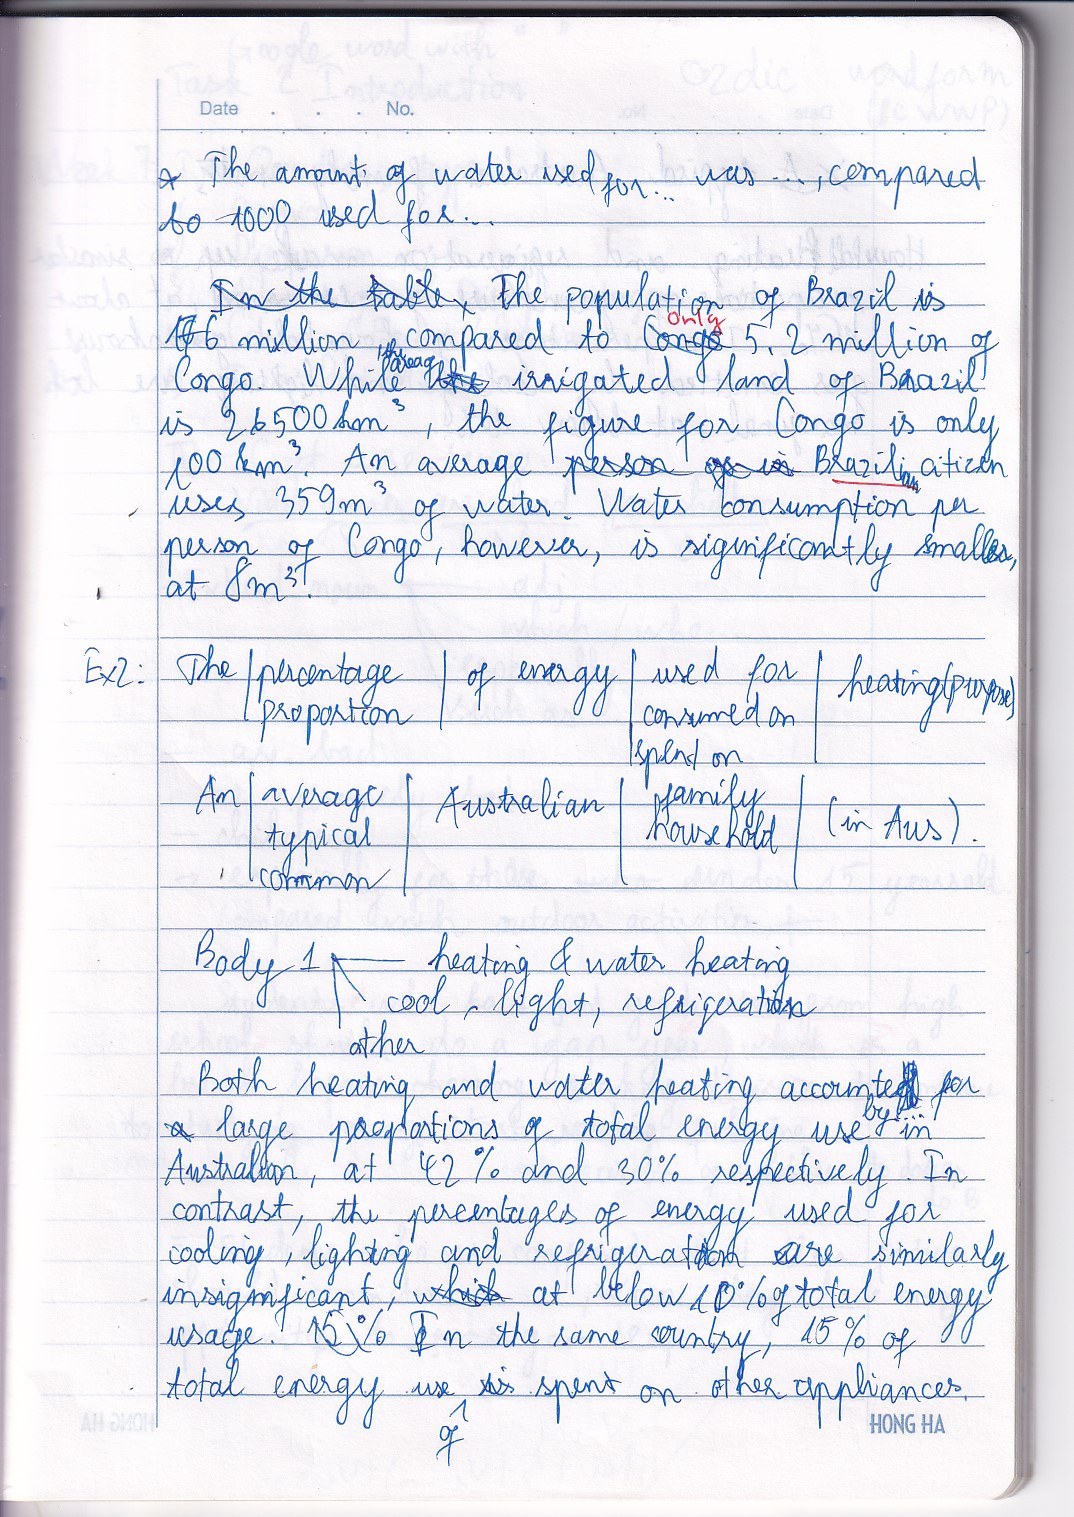 Date . . . No.
* The amount of water used for... was ..., compared
to 1000 used for...
In the table, The population of Brazil is
only
176 million, compared to Congo 5.2 million of
the area of
Congo. While the irrigated land of Brazil
is 26500 km³, the figure for Congo is only
100 km³. An average person of in Brazilian citizen
uses 359m³ of water. Water consumption per
person of Congo, however, is significantly smaller,
at 8m³.
Ex2: The | percentage | of energy | used for | heating (purpose)
proportion consumed on
spend on
An | average | Australian | family | (in Aus).
typical household
common
Body 1 heating & water heating
cool, light, refrigeration
other
Both heating and water heating accounted for
by
a large proportions of total energy use in
Australian, at 42% and 30% respectively. In
contrast, the percentages of energy used for
cooling, lighting and refrigeration are similarly
insignificant, which at below 10% of total energy
usage. 15% In the same country, 15% of
total energy use is spent on other appliances.
of
HONG HA